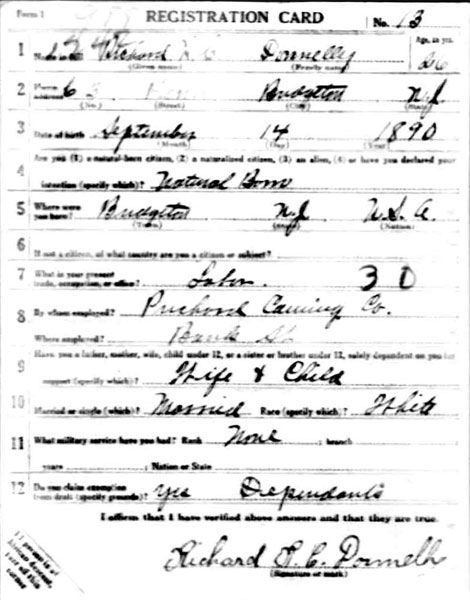 Form 1 REGISTRATION CARD No. 13
1 Name in full Richard Donnelly Age, in yrs. 26
(Given name) (Family name)
2 Home address Bridgeton N.J.
(No.) (Street) (City) (State)
3 Date of birth September 14 1890
(Month) (Day) (Year)
Are you (1) a natural-born citizen, (2) a naturalized citizen, (3) an alien, (4) or have you declared your
4 intention (specify which)? Natural Born
5 Where were you born? Bridgeton N.J. U.S.A.
(Town) (State) (Nation)
6 If not a citizen, of what country are you a citizen or subject?
7 What is your present trade, occupation, or office? Labor. 30
8 By whom employed? Canning Co.
Where employed? Bank St
9 Have you a father, mother, wife, child under 12, or a sister or brother under 12, solely dependent on you for
support (specify which)? Wife & Child
10 Married or single (which)? Married Race (specify which)? White
11 What military service have you had? Rank None ; branch
years ; Nation or State
12 Do you claim exemption from draft (specify grounds)? Yes Dependants
I affirm that I have verified above answers and that they are true.
Richard Donnelly
(Signature or mark)